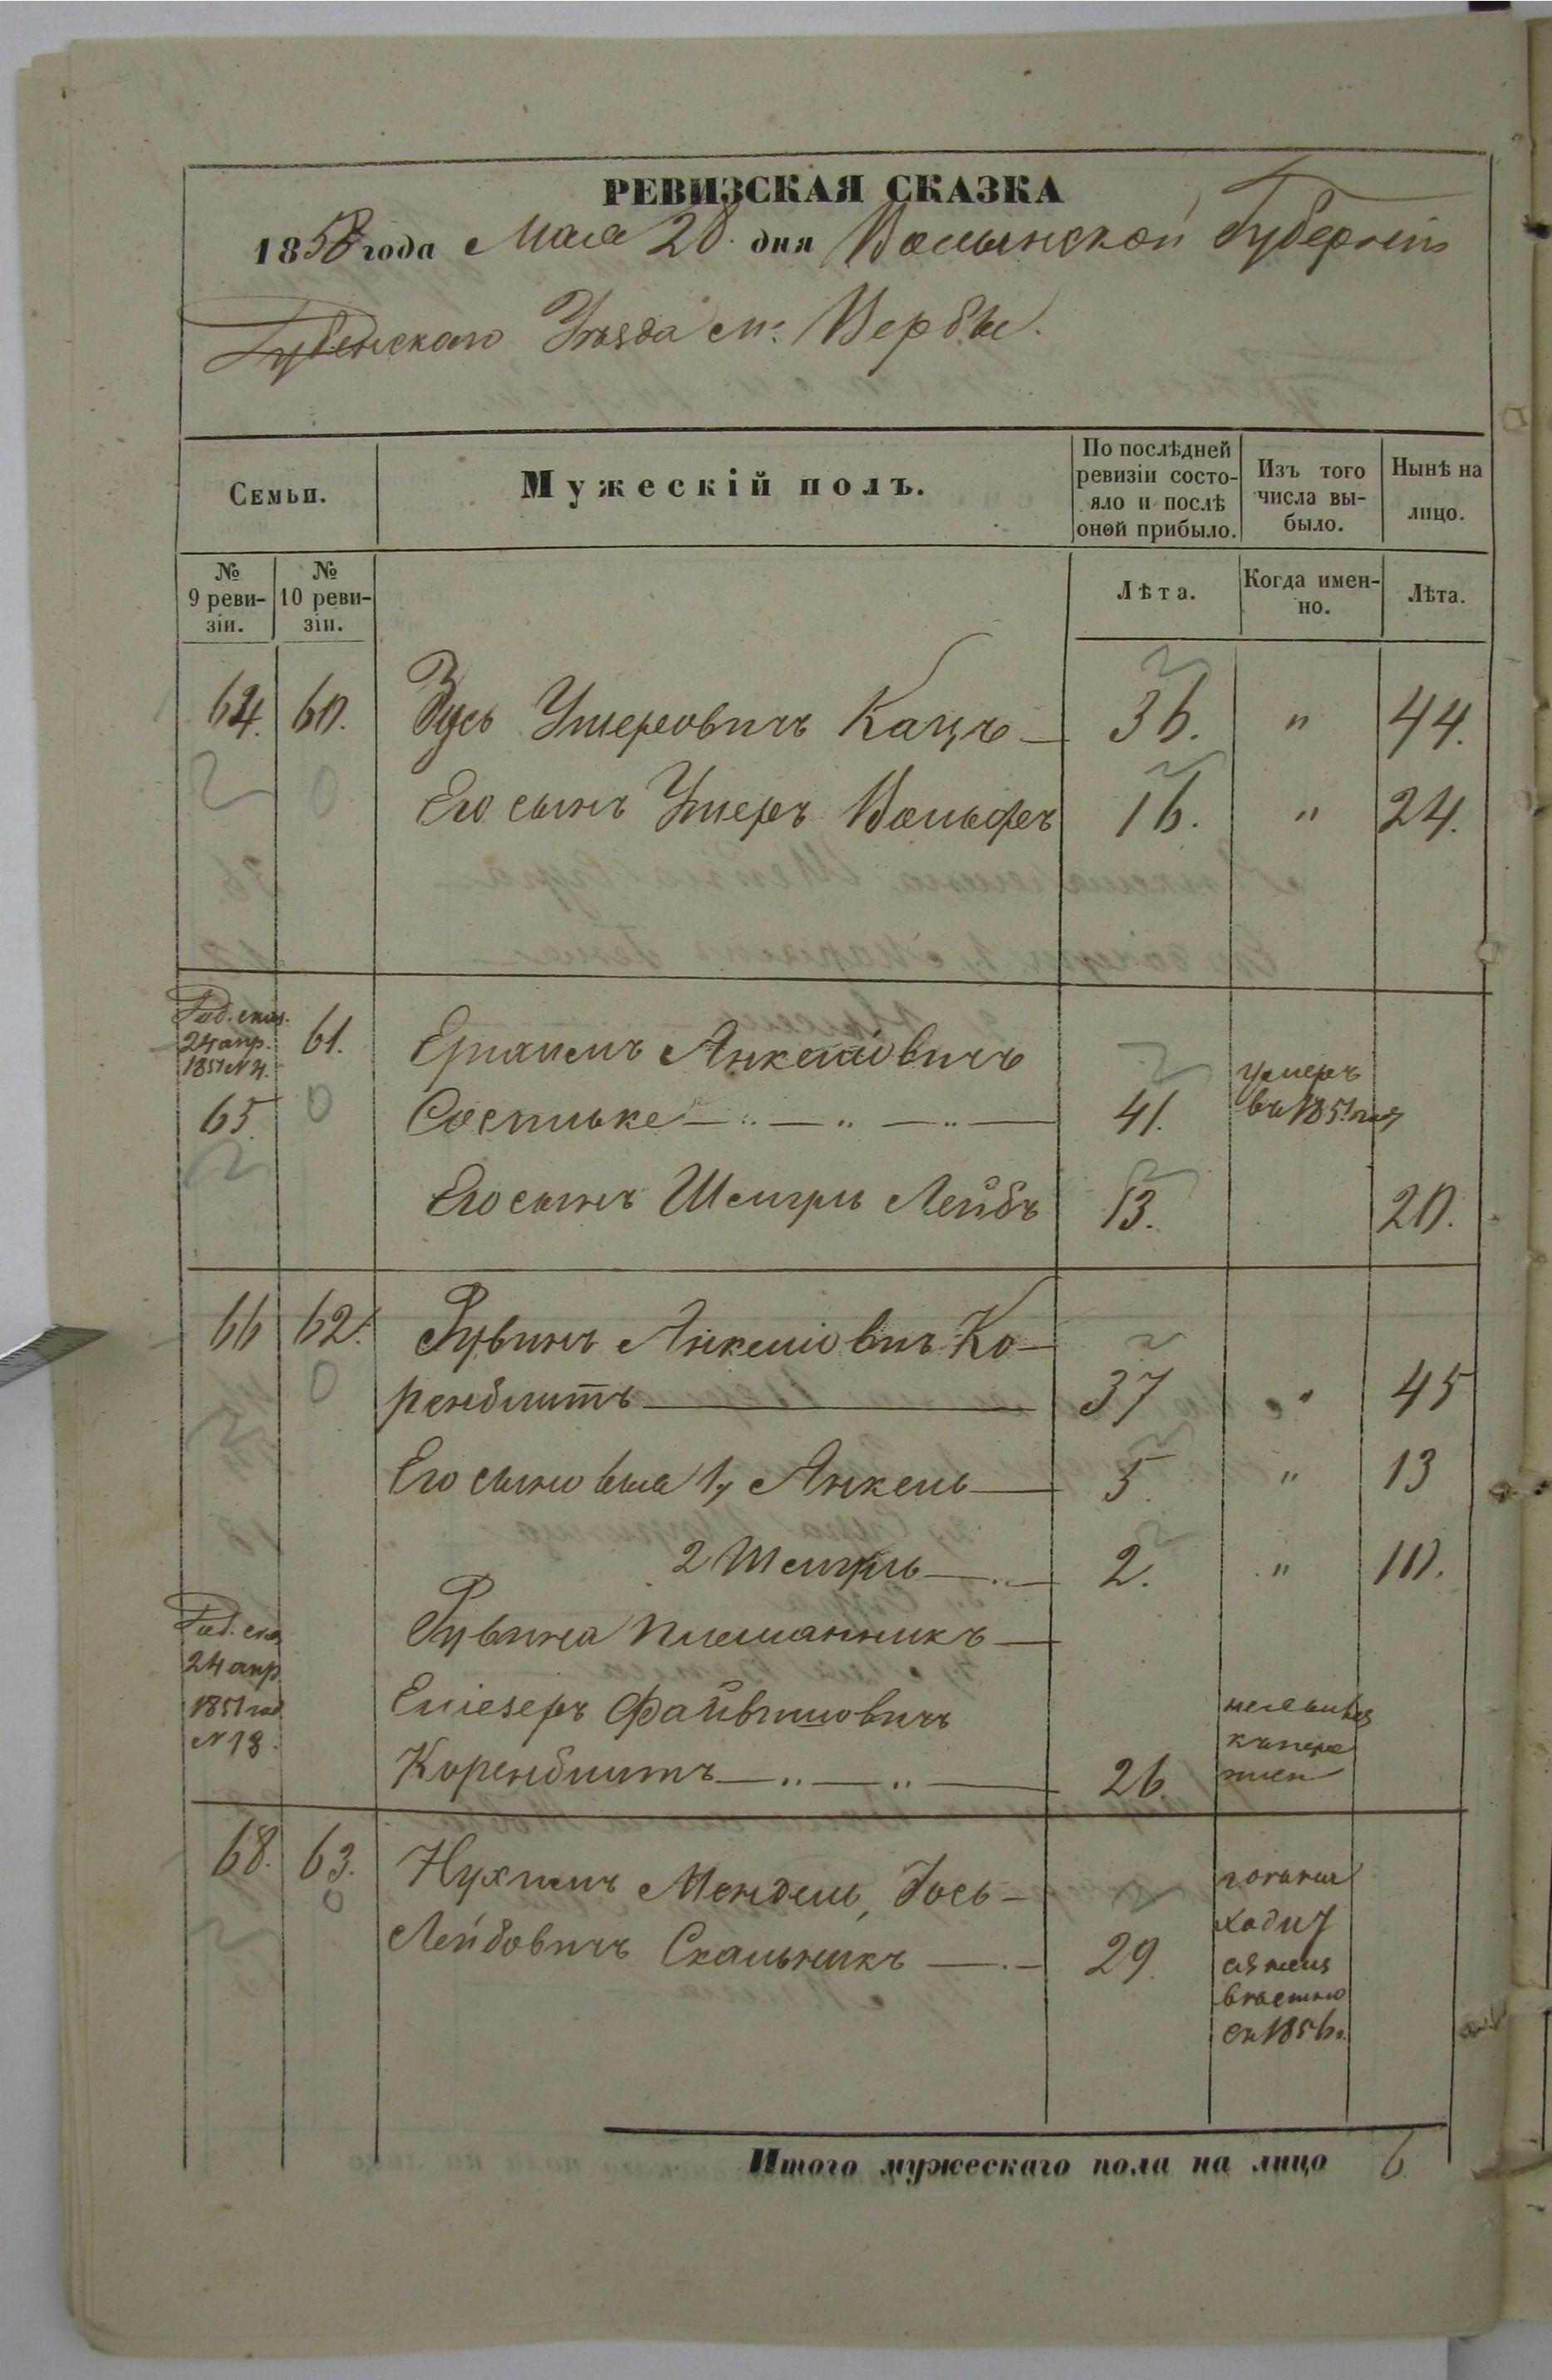 РЕВИЗСКАЯ СКАЗКА
1858 года Мая 20. дня Волынской Губерніи
Дубенскаго Уѣзда м. Вербы.
Семьи.
Мужескій полъ.
По послѣдней ревизіи состояло и послѣ оной прибыло.
Изъ того числа выбыло.
Нынѣ на лицо.
№ 9 ревизіи.
№ 10 ревизіи.
Лѣта.
Когда именно.
Лѣта.
64. 60. Зусь Ушеровичъ Кацъ 36. " 44.
Его сынъ Ушеръ Вольфъ 16. " 24.
24 апр.
1851 №
61. Янкелiовичъ
65. 41. умеръ въ 1851 год
Его сынъ Шмуль Лейбъ 13. 20.
66 62. Рувинъ Янкелiовичъ Ко-
ренблитъ 37 " 45
Его сыновья 1, Янкель 5. " 13
2 Шмуль 2. " 10.
Рувина племянникъ
24 апр.
1851 год
№ 18.
Елiезеръ Файвишовичъ
Коренблитъ 26.
68. 63. Нухимъ Мендель, Іось-
Лейбовичъ Скальникъ 29.
1856
Итого мужескаго пола на лицо 6.